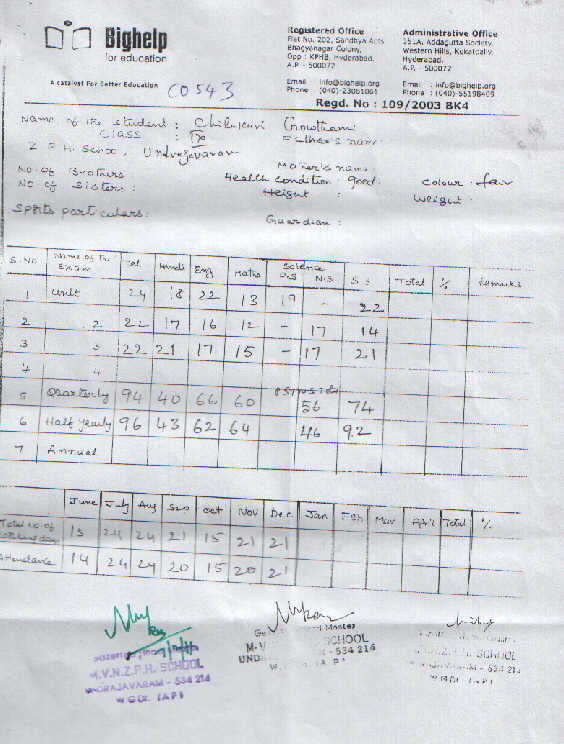 Bighelp
for education
A catalyst For Better Education
C0543
Registered Office
Flat No. 202, Sandhya Apts
Bhagyanagar Colony,
Opp : KPHB, Hyderabad.
A.P. - 500072
Email : info@bighelp.org
Phone : (040)-23061004
Administrative Office
151A, Addagutta Society,
Western Hills, Kukatpally,
Hyderabad,
A.P. - 500072
Email : info@bighelp.org
Phone : (040)-55198409
Regd. No : 109/2003 BK4
Name of the student : Chilukuri Gowthami
Class : Father's name
Z P H School, Undrajavaram
No. of Brothers Mother's name :
No of Sisters : Health condition : good. colour - fair
Height : Weight :
Sports particulars : Guardian :
S.No Name of the Exam Tel Hindi Eng Maths Science P.S N.S S.S Total % Remarks
1 Unit 24 18 22 13 19 - 22
2 2 22 17 16 12 - 17 14
3 3 22 21 17 15 - 17 21
4 4
5 Quarterly 94 40 66 60 56 74
6 Half yearly 96 43 62 64 46 92
7 Annual
June July Aug Sep Oct Nov Dec Jan Feb Mar April Total %
Total no. of working days 15 24 24 21 15 21 21
Attendance 14 24 24 20 15 20 21
M.V.N.Z.P.H. SCHOOL
UNDRAJAVARAM - 534 216
W.GDt. (A.P)
Master
SCHOOL
- 534 216
SCHOOL
- 534 216
W.GDt. (A.P)